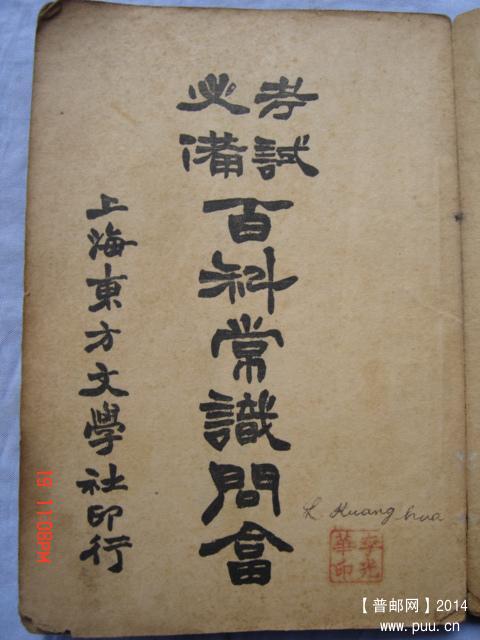 考試
必備
百科常識問畣
上海東方文學社印行
L Kuang hua
李光
華印
19 11:08PM
【普邮网】2014
www.puu.cn